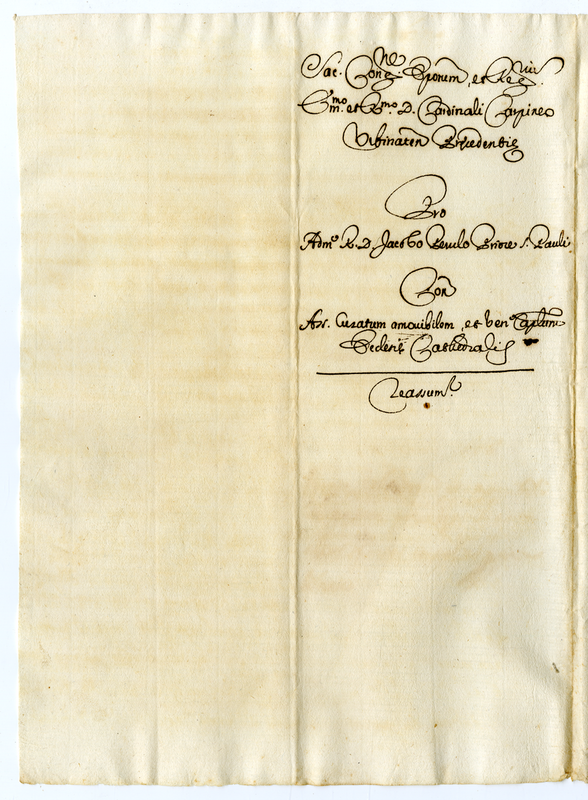 Sac. Congne Eporum, et Regriu
Emmo. et Rmo. D. Cardinali Carpineo
Urbinaten Precedentie
Pro
Admo R. D. Jacobo Benulo Priore S. Pauli
Con
As. Curatum amovibilem, et ven Caplum
Ecclesie Cathedralis
Reassumt.